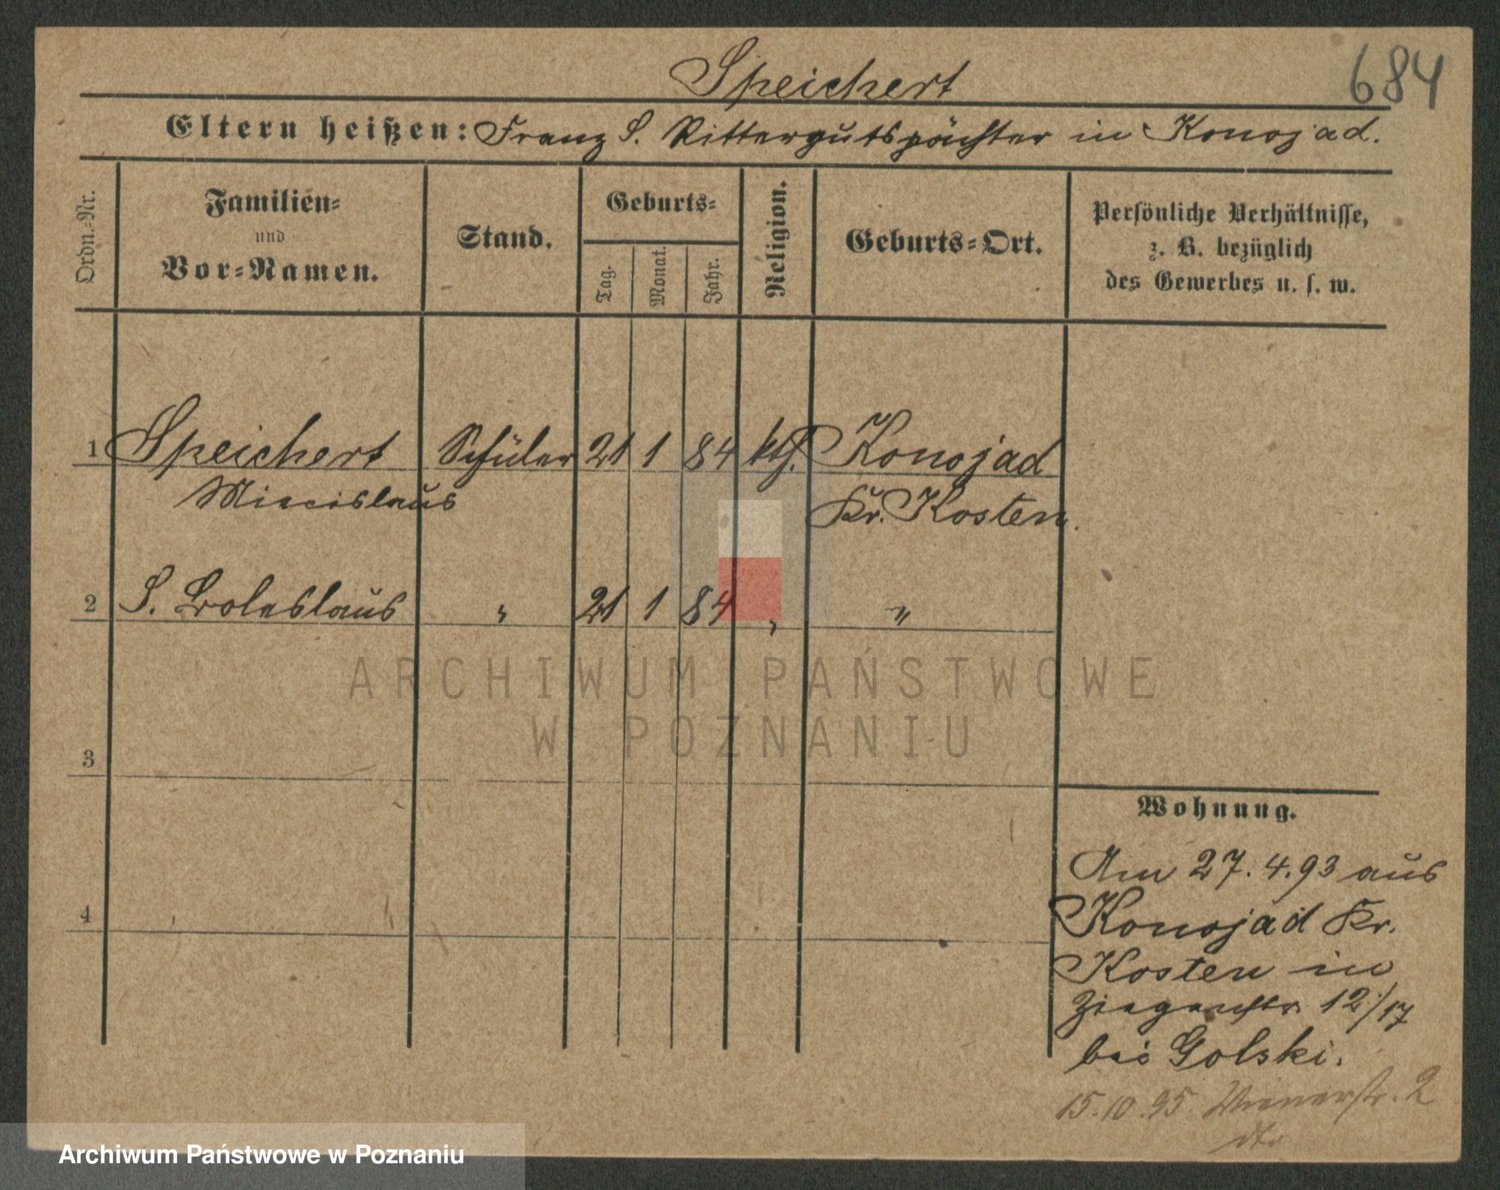 684
Speichert
Eltern heißen: Franz S. Rittergutspächter in Konojad.
Ordn.-Nr.
Familien-
und
Vor-Namen.
Stand.
Geburts-
Tag.
Monat.
Jahr.
Religion.
Geburts-Ort.
Persönliche Verhältnisse,
z. B. bezüglich
des Gewerbes u. s. w.
1 Speichert Schüler 21 1 84 kth. Konojad
Miecislaus Kr. Kosten.
2 S. Boleslaus " 21 1 84 " "
ARCHIWUM PAŃSTWOWE
W POZNANIU
3
4
Wohnung.
Am 27.4.93 aus
Konojad Kr.
Kosten in
Ziegenstr. 12/17
bei Golski.
15.10.95. Wienerstr. 2
Archiwum Państwowe w Poznaniu